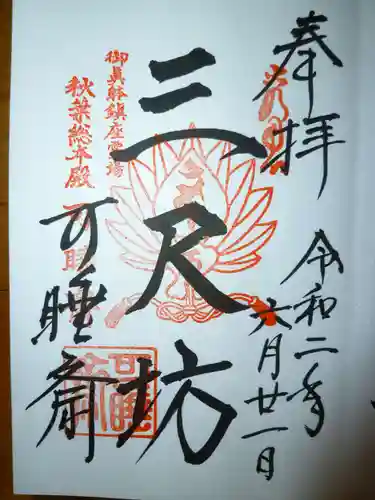 奉拝
令和二年
六月廿一日
三尺坊
御眞躰鎮座霊場
秋葉総本殿
可睡斎